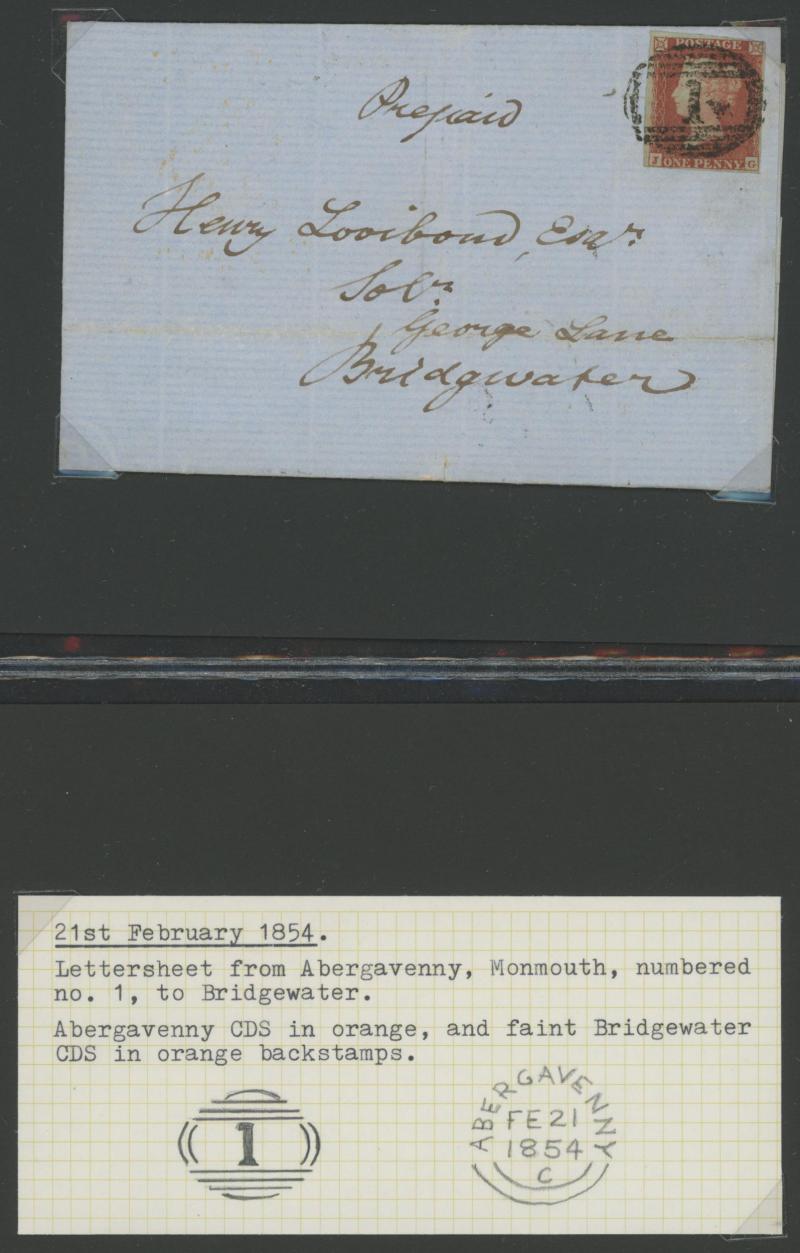 POSTAGE
1
J ONE PENNY G
Prepaid
Henry Lovibond, Esqr.
Solr.
George Lane
Bridgwater
21st February 1854.
Lettersheet from Abergavenny, Monmouth, numbered
no. 1, to Bridgewater.
Abergavenny CDS in orange, and faint Bridgewater
CDS in orange backstamps.
1
ABERGAVENNY
FE 21
1854
C